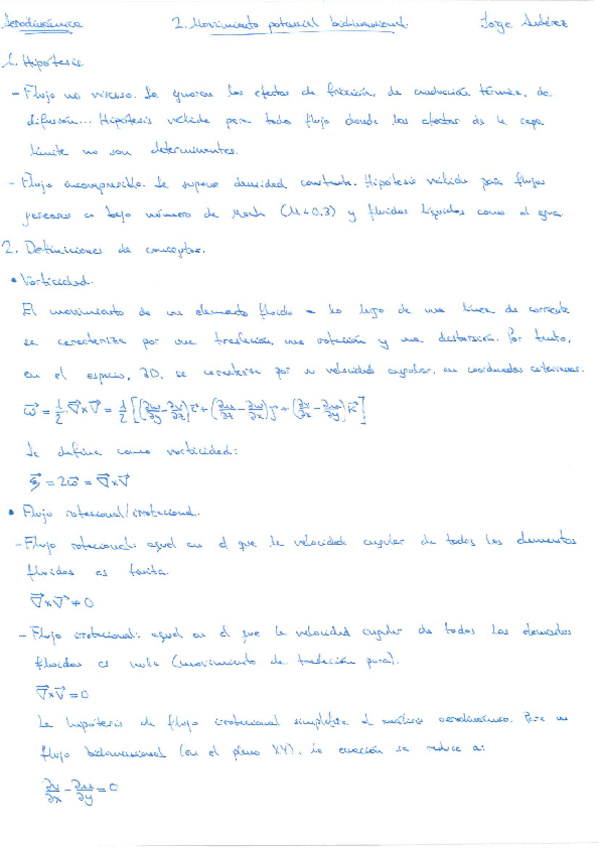 Aerodinámica 2. Movimiento potencial bidimensional. Jorge
1. Hipótesis
- Flujo no viscoso. Se ignoran los efectos de fricción, de conducción térmica, de
difusión... Hipótesis válida para todo flujo donde los efectos de la capa
límite no son determinantes.
- Flujo incompresible. Se supone densidad constante. Hipótesis válida para flujos
gaseosos a bajo número de Mach (M<0,3) y fluidos líquidos como el agua
2. Definiciones de conceptos.
• Vorticidad.
El movimiento de un elemento fluido a lo largo de una línea de corriente
se caracteriza por una traslación, una rotación y una distorsión. Por tanto,
en el espacio, 3D, se caracteriza por su velocidad angular, en coordenadas cartesianas:
ω⃗ = 1/2 · ∇⃗×V⃗ = 1/2 [(∂w/∂y - ∂v/∂z) i⃗ + (∂u/∂z - ∂w/∂x) j⃗ + (∂v/∂x - ∂u/∂y) k⃗]
Se define como vorticidad:
ξ⃗ = 2ω⃗ = ∇⃗×V⃗
• Flujo rotacional/irrotacional.
- Flujo rotacional: aquel en el que la velocidad angular de todos los elementos
fluidos es finita.
∇⃗×V⃗ ≠ 0
- Flujo irrotacional: aquel en el que la velocidad angular de todos los elementos
fluidos es nula (movimiento de traslación pura).
∇⃗×V⃗ = 0
La hipótesis de flujo irrotacional simplifica el análisis aerodinámico. Para un
flujo bidimensional (en el plano XY), la ecuación se reduce a:
∂v/∂x - ∂u/∂y = 0